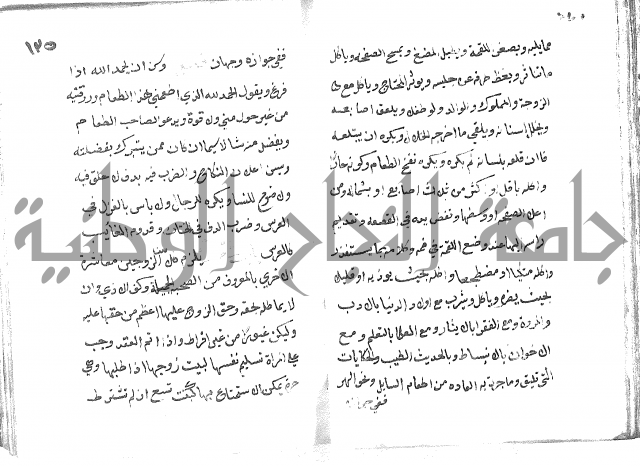 مما يليه ويصغر اللقمة ويطيل المضغ ويمسح الصحفة وياكل
ما تناثر ويغض طرفه عن جليسه ويوثر المحتاج وياكل مع
الزوجة والمملوك والولد ولو طفلا ويلعق اصابعه
ويخلل اسنانه ويلقي ما اخرجه الخلال ويكره ان يبتلعه
فان قلعه بلسانه لم يكره ويكره نفخ الطعام وكونه حارا
واكله باقل او اكثر من ثلاث اصابع او بشماله ومن
اعلى الصحفة او وسطها ونفض يده في القصعة وتقديم
راسه اليها عند وضع اللقمة في فمه وكلامه بما يستقذر
واكله متكيا او مضطجعا واكله كثيرا بحيث يوذيه او قليلا
بحيث يضره وياكل ويشرب مع ابناء الدنيا بالادب
والمروة ومع الفقرا بالايثار ومع العلما بالتعلم ومع
الاخوان بالانبساط وبالحديث الطيب والحكايات
التي تليق وما جرت به العادة من اطعام السايل ونحو الهر
ففي جوازه
١٢٥
ففي جوازه وجهان وسن ان يحمد الله اذا
فرغ ويقول الحمد لله الذي اطعمني هذا الطعام ورزقنيه
من غير حول مني ولا قوة ويدعو لصاحب الطعام
ويفضل منه شيا لا سيما ان كان ممن يتبرك بفضلته
ويسن اعلان النكاح والضرب فيه بدف لا حلق فيه
ولا صنوج للنسا ويكره للرجال ولا باس بالغزل في
العرس وضرب الدف في الختان وقدوم الغايب
كالعرس يلزم كل من الزوجين معاشرة
الاخر بالمعروف من الصحبة الجميلة وكف الاذي وان
لا يماطله بحقه وحق الزوج عليها اعظم من حقها عليه
وليكن غيورا من غير افراط واذا تم العقد وجب
علي المراة تسليم نفسها لبيت زوجها اذا طلبها وهي
حرة يمكن الاستمتاع بها كبنت تسع ان لم تشترط
جامعة النجاح الوطنية